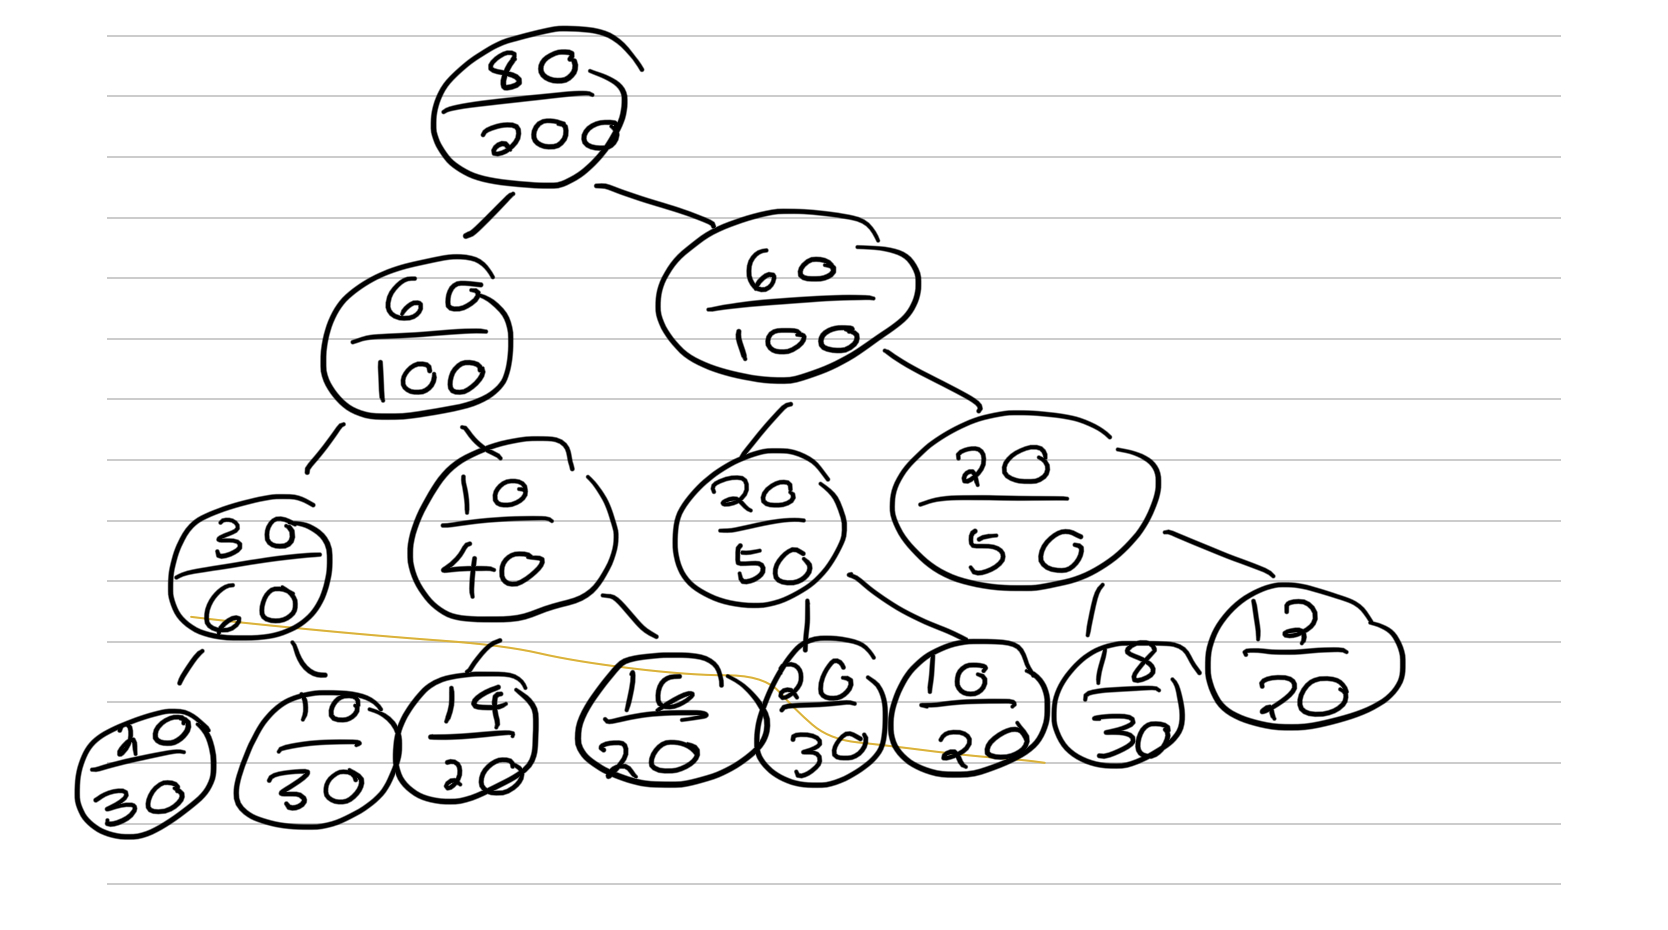 80
200
60
100
60
100
30
60
10
40
20
50
20
50
20
30
10
30
14
20
16
20
20
30
10
20
18
30
12
20